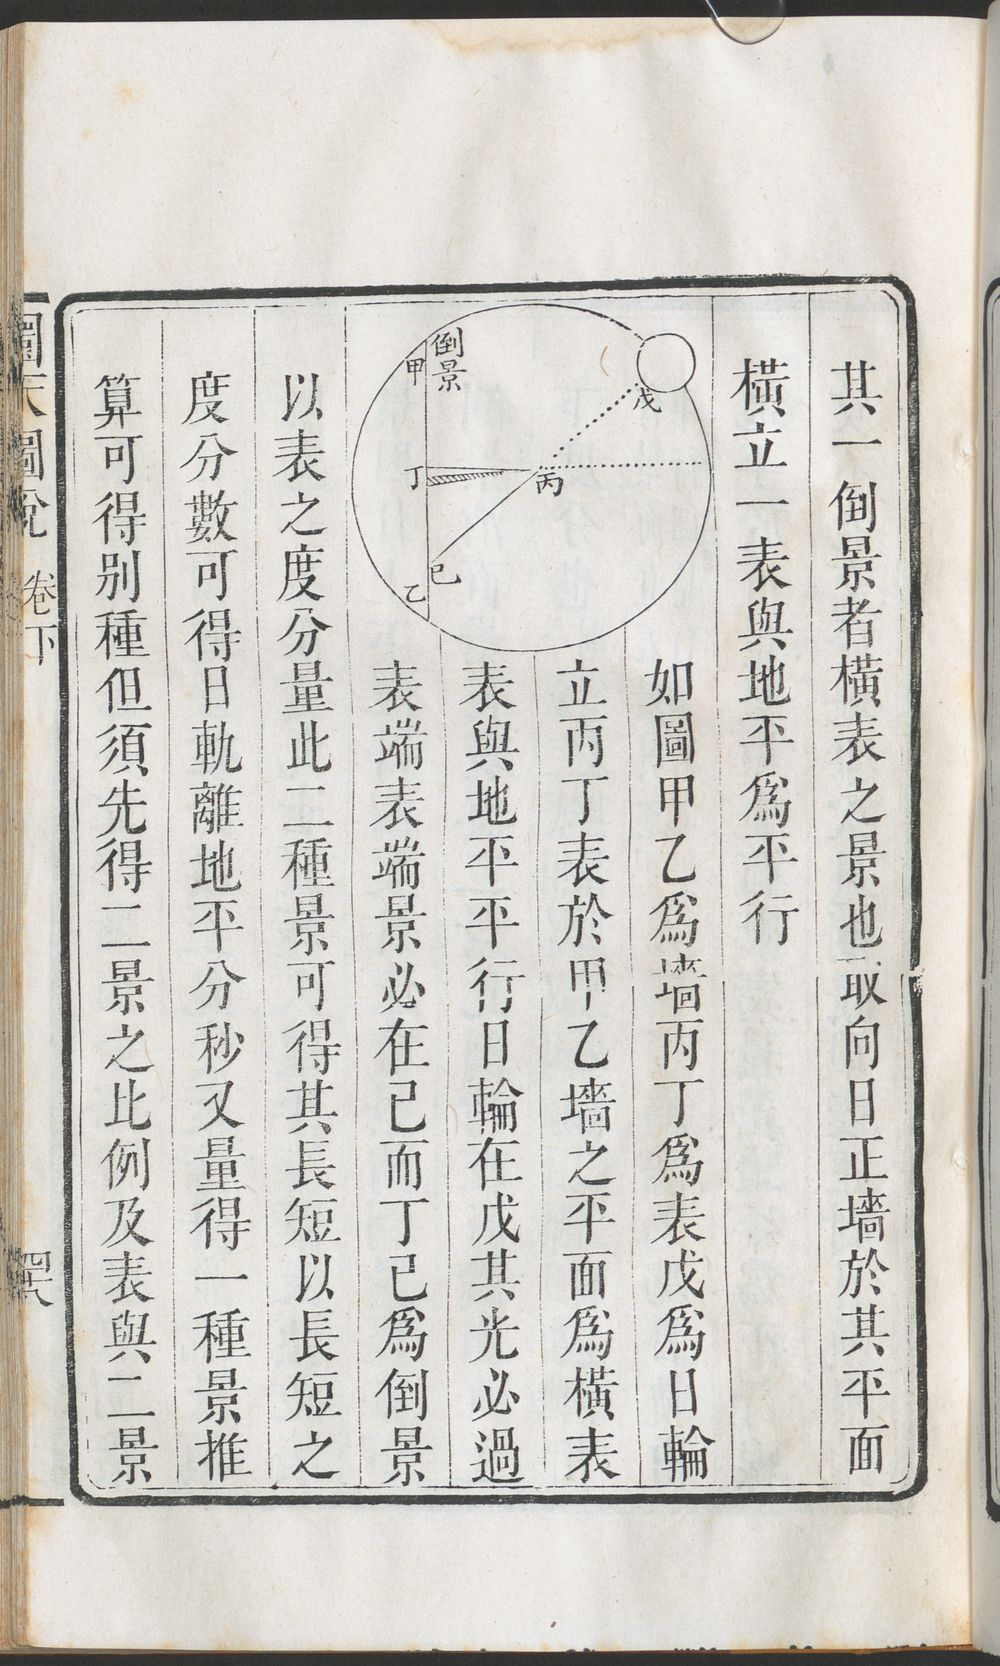 其一倒景者橫表之景也取向日正墻於其平面
橫立一表與地平爲平行
倒景
甲
戊
丁
丙
己
乙
如圖甲乙爲墻丙丁爲表戊爲日輪
立丙丁表於甲乙墻之平面爲橫表
表與地平平行日輪在戊其光必過
表端表端景必在己而丁己爲倒景
以表之度分量此二種景可得其長短以長短之
度分數可得日軌離地平分秒又量得一種景推
算可得別種但須先得二景之比例及表與二景
圜天圖說 卷下